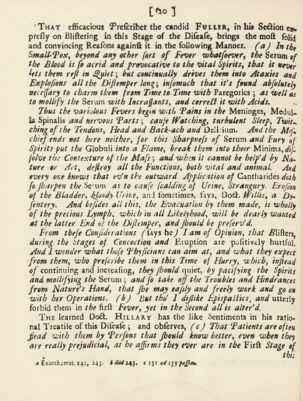 [ 20 ]
THAT efficacious Prescriber the candid FULLER, in his Section ex-
presly on Blistering in this Stage of the Disease, brings the most solid
and convincing Reasons against it in the following Manner. (a) In the
Small-Pox, beyond any other sort of Fever whatsoever, the Serum of
the Blood is so acrid and provocative to the vital Spirits, that it never
lets them rest in Quiet; but continually drives them into Ataxies and
Explosions all the Distemper long; insomuch that it's found absolutely
necessary to charm them from Time to Time with Paregorics; as well as
to mollify the Serum with Incrassants, and correct it with Acids.
Thus the various Fevers begin with Pains in the Meninges, Medul-
la Spinalis and nervous Parts; cause Watching, turbulent Sleep, Twitc-
ching of the Tendons, Head and Back-ach and Delirium. And the Mis-
chief ends not here neither, for this Sharpness of Serum and Fury of
Spirits put the Globuli into a Flame, break them into their Minima, dis-
solve the Contexture of the Mass; and when it cannot be help'd by Na-
ture or Art, destroy all the Functions, both vital and animal. And
every one knows that even the outward Application of Cantharides doth
so sharpen the Serum as to cause scalding of Urine, Strangury, Erosion
of the Bladder, bloody Urine, and sometimes, says, Doct. Willis, a Dy-
sentery. And besides all this, the Evacuation by them made, is wholly
of the precious Lymph, which in all Likelyhood, will be dearly wanted
at the latter End of the Distemper, and should be preserv'd.
From these Considerations (says he) I am of Opinion, that Blisters,
during the Stages of Concoction and Eruption are positively hurtful.
And I wonder what those Physicians can aim at, and what they expect
from them, who prescribe them in this Time of Hurry, which, instead
of continuing and increasing, they should quiet, by pacifying the Spirits
and mollifying the Serum; and so take off the Troubles and Hindrances
from Nature's Hand, that she may easily and freely work and go on
with her Operations. (b) But tho' I dislike Epispastics, and utterly
forbid them in the first Fever, yet in the Second all is alter'd.
The learned Doct. HILLARY has the like Sentiments in his ratio-
nal Treatise of this Disease; and observes, (c) That Patients are often
plied with them by Persons that should know better, even when they
are really prejudicial, as he affirms they ever are in the First Stage of
this
a Exanthemat. 242, 243. b ibid 243. c 131 ad 135 passim.